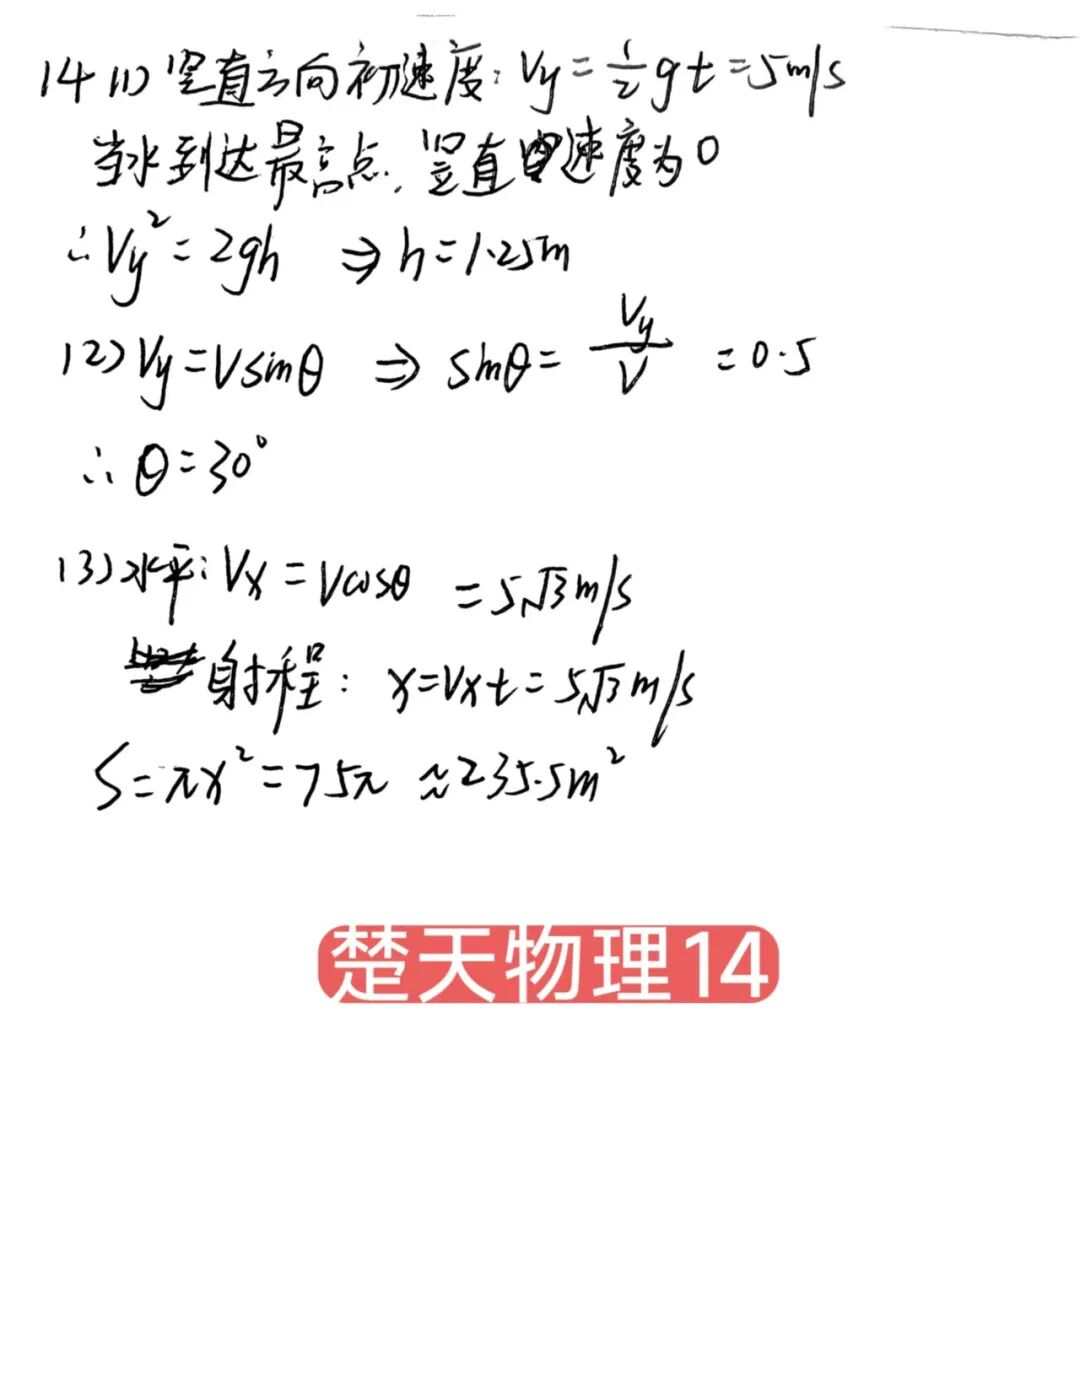 14 (1) 竖直方向初速度: Vy=½gt=5m/s
当水到达最高点,竖直速度为0
∴Vy²=2gh ⇒h=1.25m
(2) Vy=Vsinθ ⇒ sinθ=Vy/V=0.5
∴θ=30°
(3) 水平: Vx=Vcosθ=5√3m/s
射程: x=Vxt=5√3m/s
S=πx²=75π≈235.5m²
楚天物理14